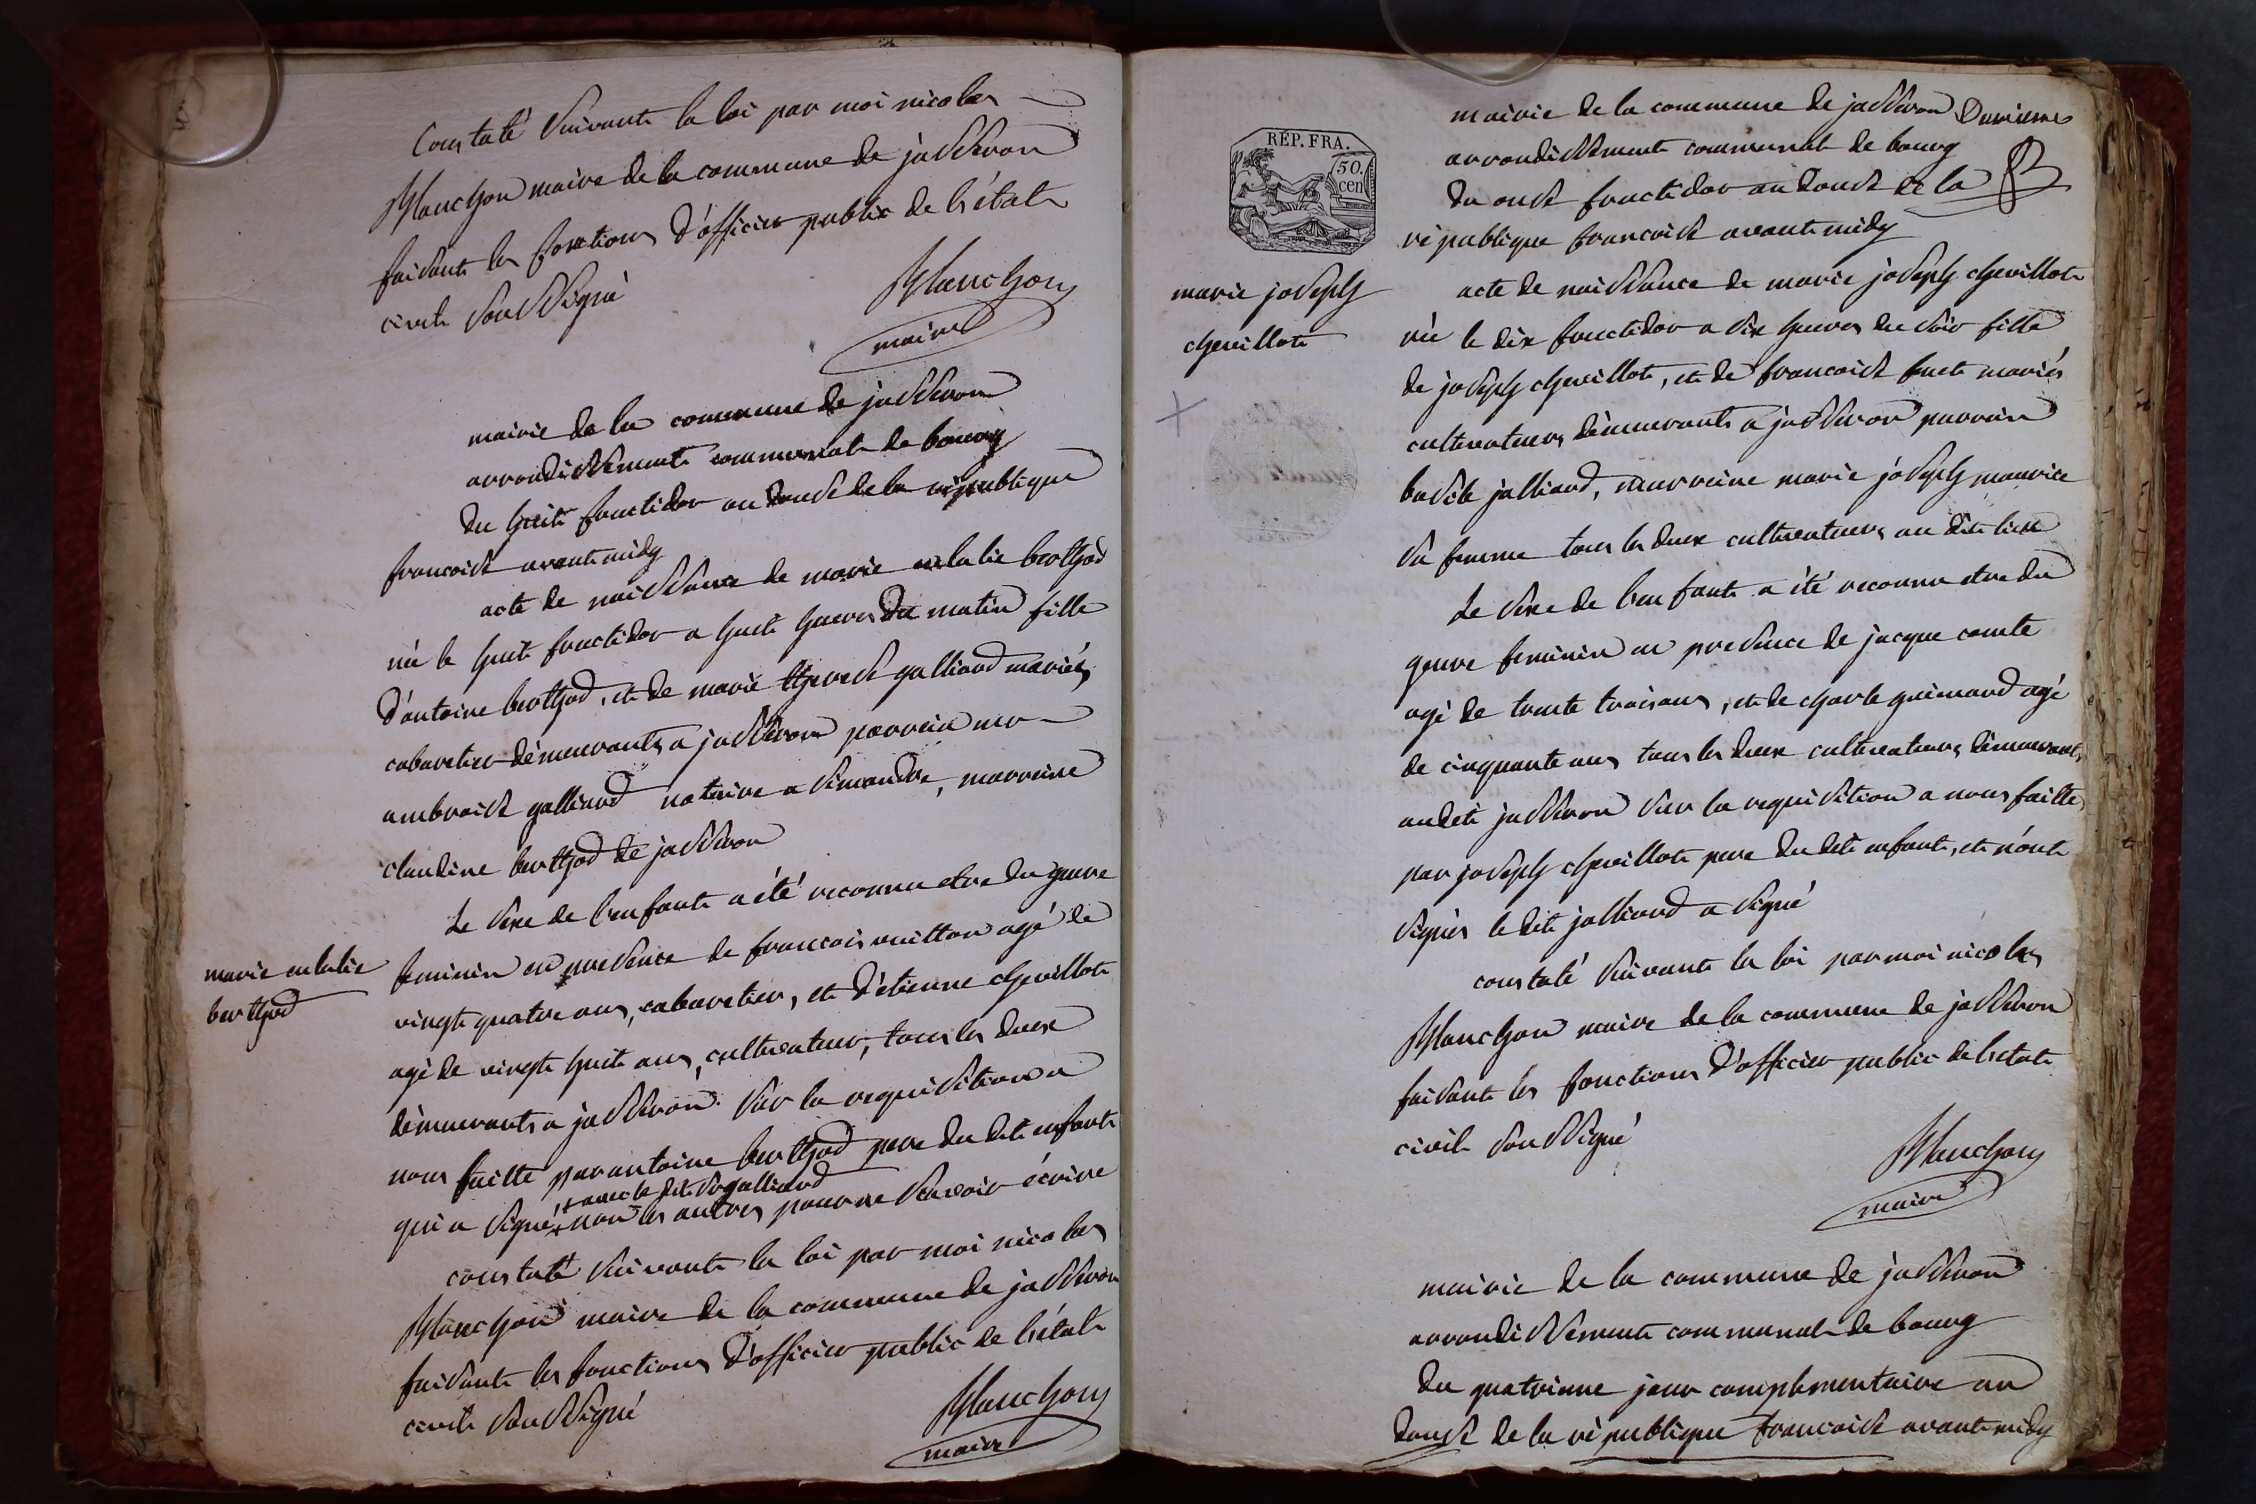 Constaté suivante la loi par moi nicolas
Planchon maire de la commune de jasseron
faisante les fonctions d'officier public de l'état
civile soussigné
Planchon
maire
mairie de la commune de jasseron
arrondissemente communale de bourg
du huit fructidor an douse de la république
francoise avant midy
acte de naissance de marie eulalie berthod
née le huit fructidor a huit heures du matin fille
d'antoine berthod, et de marie therese galliard mariés
cabaretier démeurants a jasseron parrein mr
ambroise galliard notaire a simandre, marreine
claudine berthod de jasseron
marie eulalie
berthod
Le sexe de l'enfante a été reconnu etre du genre
feminin en presence de francois vuitton agé de
vingte quatre ans, cabaretier, et d'étienne chevillote
agé de vingte huit ans, cultivateur, tous les deux
démeurants a jasseron. sur la requisition a
nous faitte par antoine berthod pere du dite enfante
+ avec le dit sr galliard
qui a signé + non les autres pour ne scavoir écrire
constaté suivante la loi par moi nicolas
Planchon maire de la commune de jasseron
faisante les fonctions d'officier public de l'état
civile soussigné
Planchon
maire
RÉP. FRA.
50.
cen
mairie de la commune de jasseron Dunieme
arrondissemente communale de bourg
du onse fructidor an douse de la
république francoise avante midy
marie joseph
chevillote
acte de naissance de marie joseph chevillote
née le dix fructidor a six heures du soir fille
de joseph chevillote, et de francoise fuet mariés
cultivateurs démeurants a jasseron parrein
basile jalliard, marreine marie joseph maurice
sa femme tous les deux cultivateurs au dite lieu
Le sexe de l'enfante a été reconnu etre du
genre feminin en presence de jacque comte
agé de trente trois ans, et de charle guémard agé
de cinquante ans tous les deux cultivateurs démeurants
audite jasseron sur la requisition a nous faitte
par joseph chevillote pere du dite enfante, et n'onte
signés le dite jalliard a signé
constaté suivante la loi par moi nicolas
Planchon maire de la commune de jasseron
faisante les fonctions d'officier public de l'état
civil soussigné
Planchon
maire
mairie de la commune de jasseron
arrondissemente communale de bourg
du quatrieme jour complementaire an
douse de la république francoise avante midy